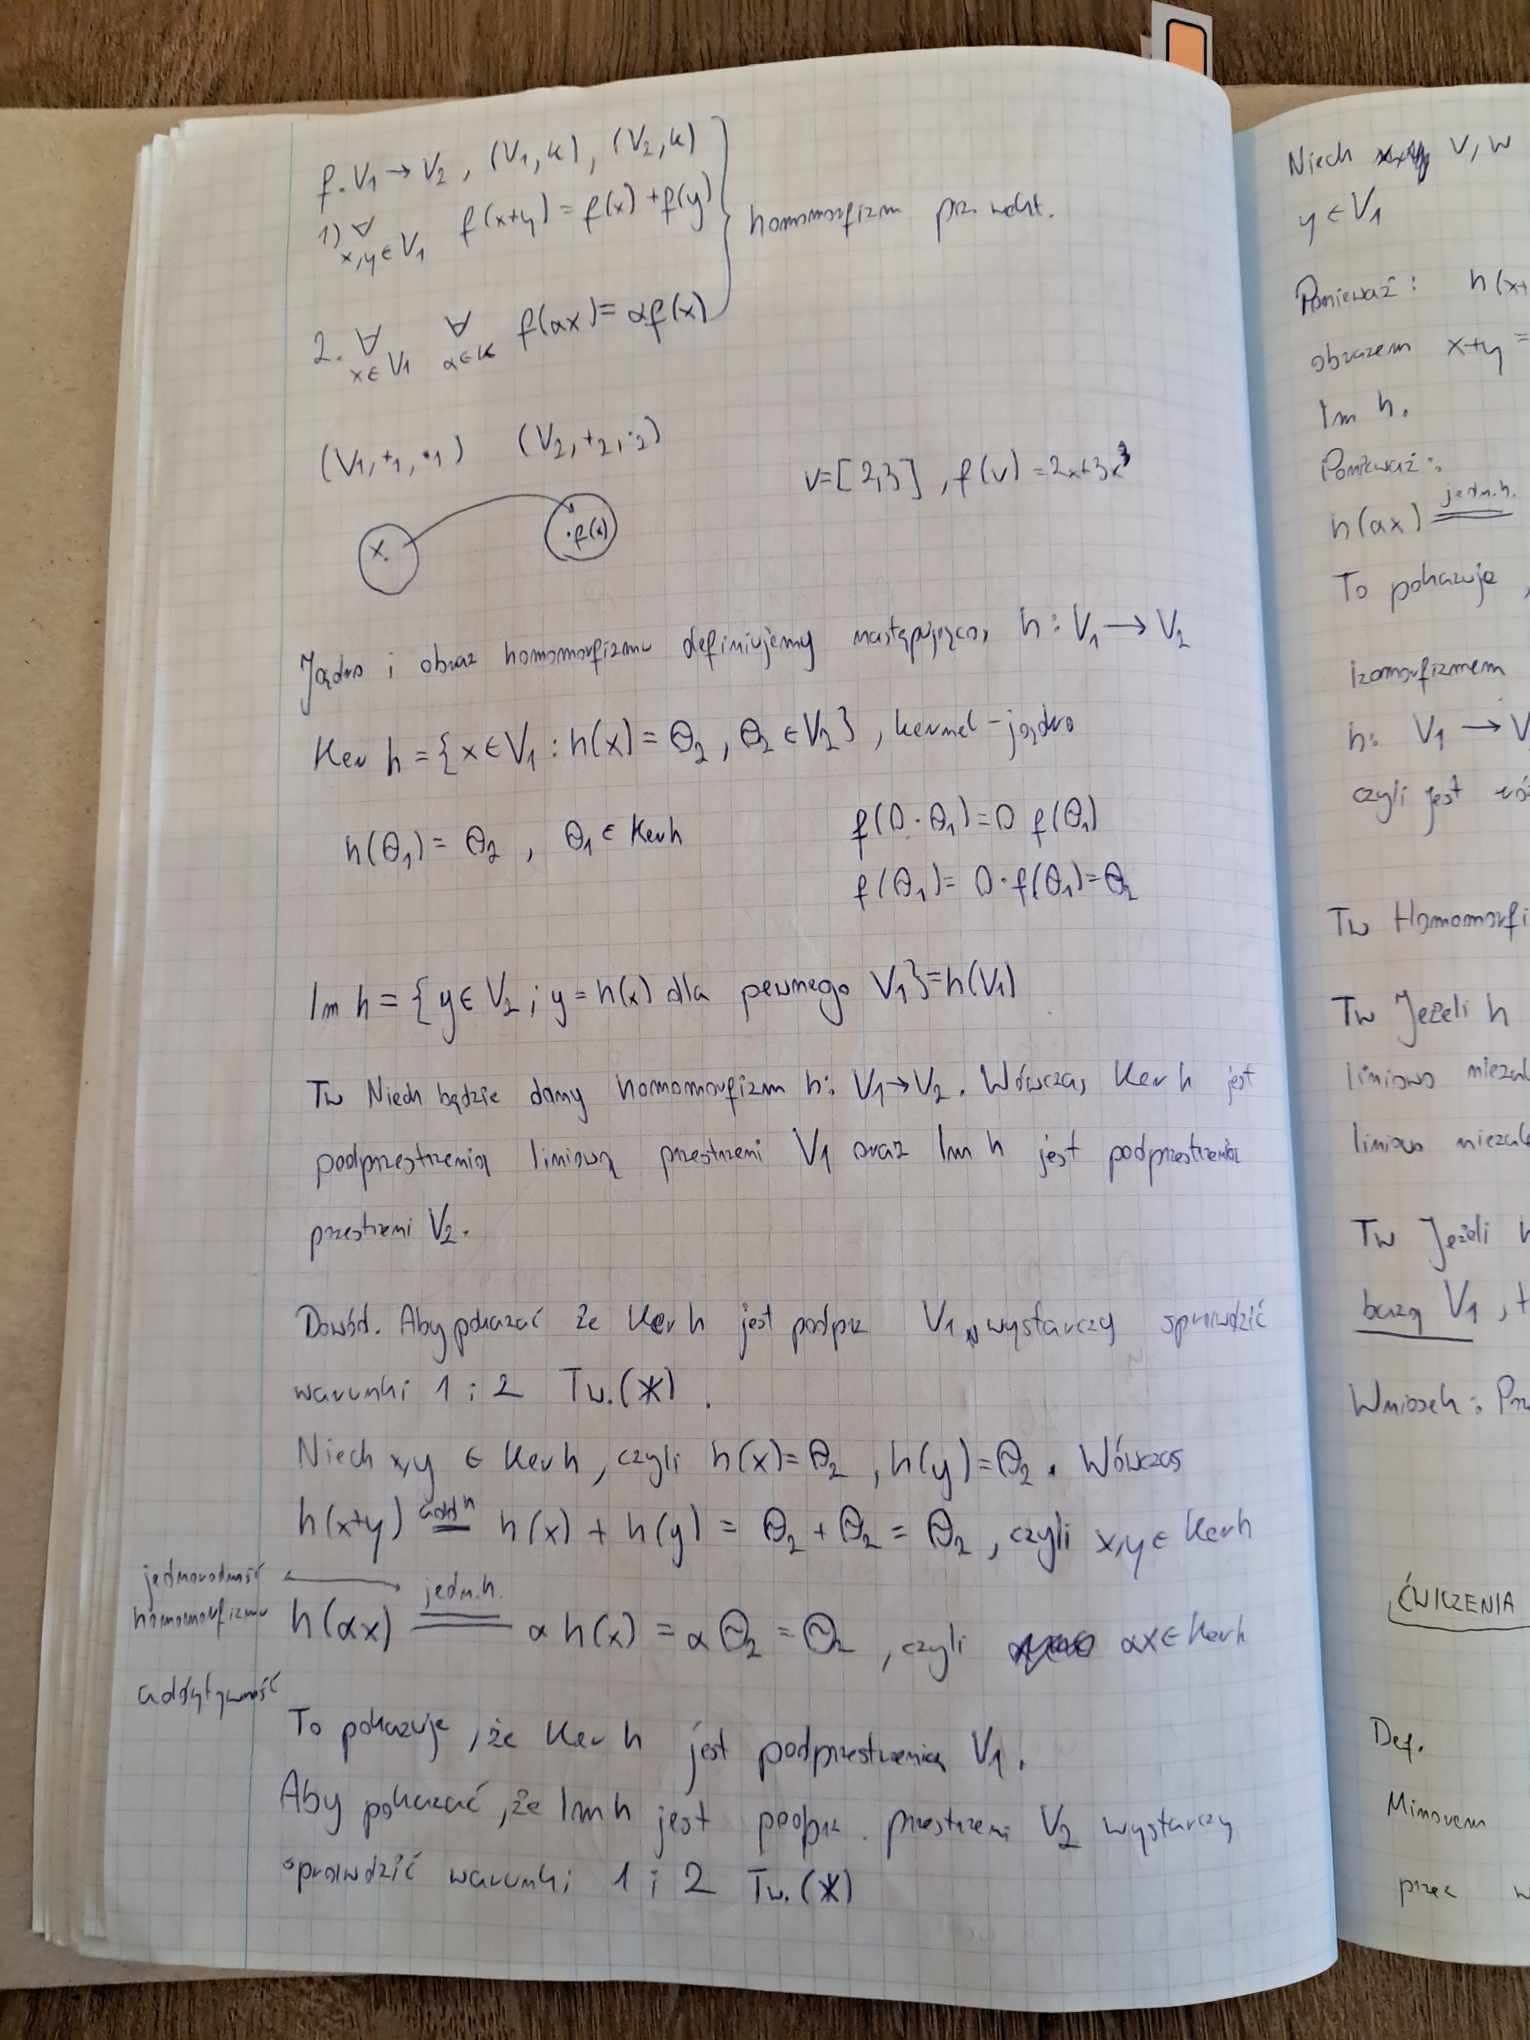 f. V₁ → V₂, (V₁, K), (V₂, K)
1) ∀ x,y ∈ V₁ f(x+y) = f(x) + f(y)
homomorfizm prz. wekt.
2. ∀ x ∈ V₁ ∀ α ∈ K f(αx) = αf(x)
(V₁, +₁, ·₁) (V₂, +₂, ·₂)
v = [2,3], f(v) = 2x+3x³
x. ·f(x)
Jądro i obraz homomorfizmu definiujemy następująco, h: V₁ → V₂
Ker h = {x ∈ V₁ : h(x) = Θ₂, Θ₂ ∈ V₂}, kernel - jądro
h(Θ₁) = Θ₂, Θ₁ ∈ Ker h
f(0·Θ₁) = 0 f(Θ₁)
f(Θ₁) = 0·f(Θ₁) = Θ₂
Im h = {y ∈ V₂ ; y = h(x) dla pewnego V₁} = h(V₁)
Tw Niech będzie dany homomorfizm h: V₁ → V₂. Wówczas Ker h jest
podprzestrzenią liniową przestrzeni V₁ oraz Im h jest podprzestrzenią
przestrzeni V₂.
Dowód. Aby pokazać że Ker h jest podprz V₁, wystarczy sprawdzić
warunki 1 i 2 Tw. (*).
Niech x,y ∈ Ker h, czyli h(x) = Θ₂, h(y) = Θ₂. Wówczas
h(x+y) = add h h(x) + h(y) = Θ₂ + Θ₂ = Θ₂, czyli x,y ∈ Ker h
jednorodność
homomorfizmu
h(αx) = jedn. h. α h(x) = α Θ₂ = Θ₂, czyli αx ∈ Ker h
addytywność
To pokazuje, że Ker h jest podprzestrzenią V₁.
Aby pokazać, że Im h jest podprz. przestrzeni V₂ wystarczy
sprawdzić warunki 1 i 2 Tw. (*)
Niech V, W
y ∈ V₁
Ponieważ: h(x+
obrazem x+y =
Im h.
Ponieważ:
h(αx) = jedn. h.
To pokazuje,
Izomorfizmem
h: V₁ → V
czyli jest róż
Tw Homomorfi
Tw Jeżeli h
liniowo niezal
liniowo niezale
Tw Jeżeli h
bazą V₁, t
Wniosek: Prz
ĆWICZENIA
Def.
Minorem
przez w